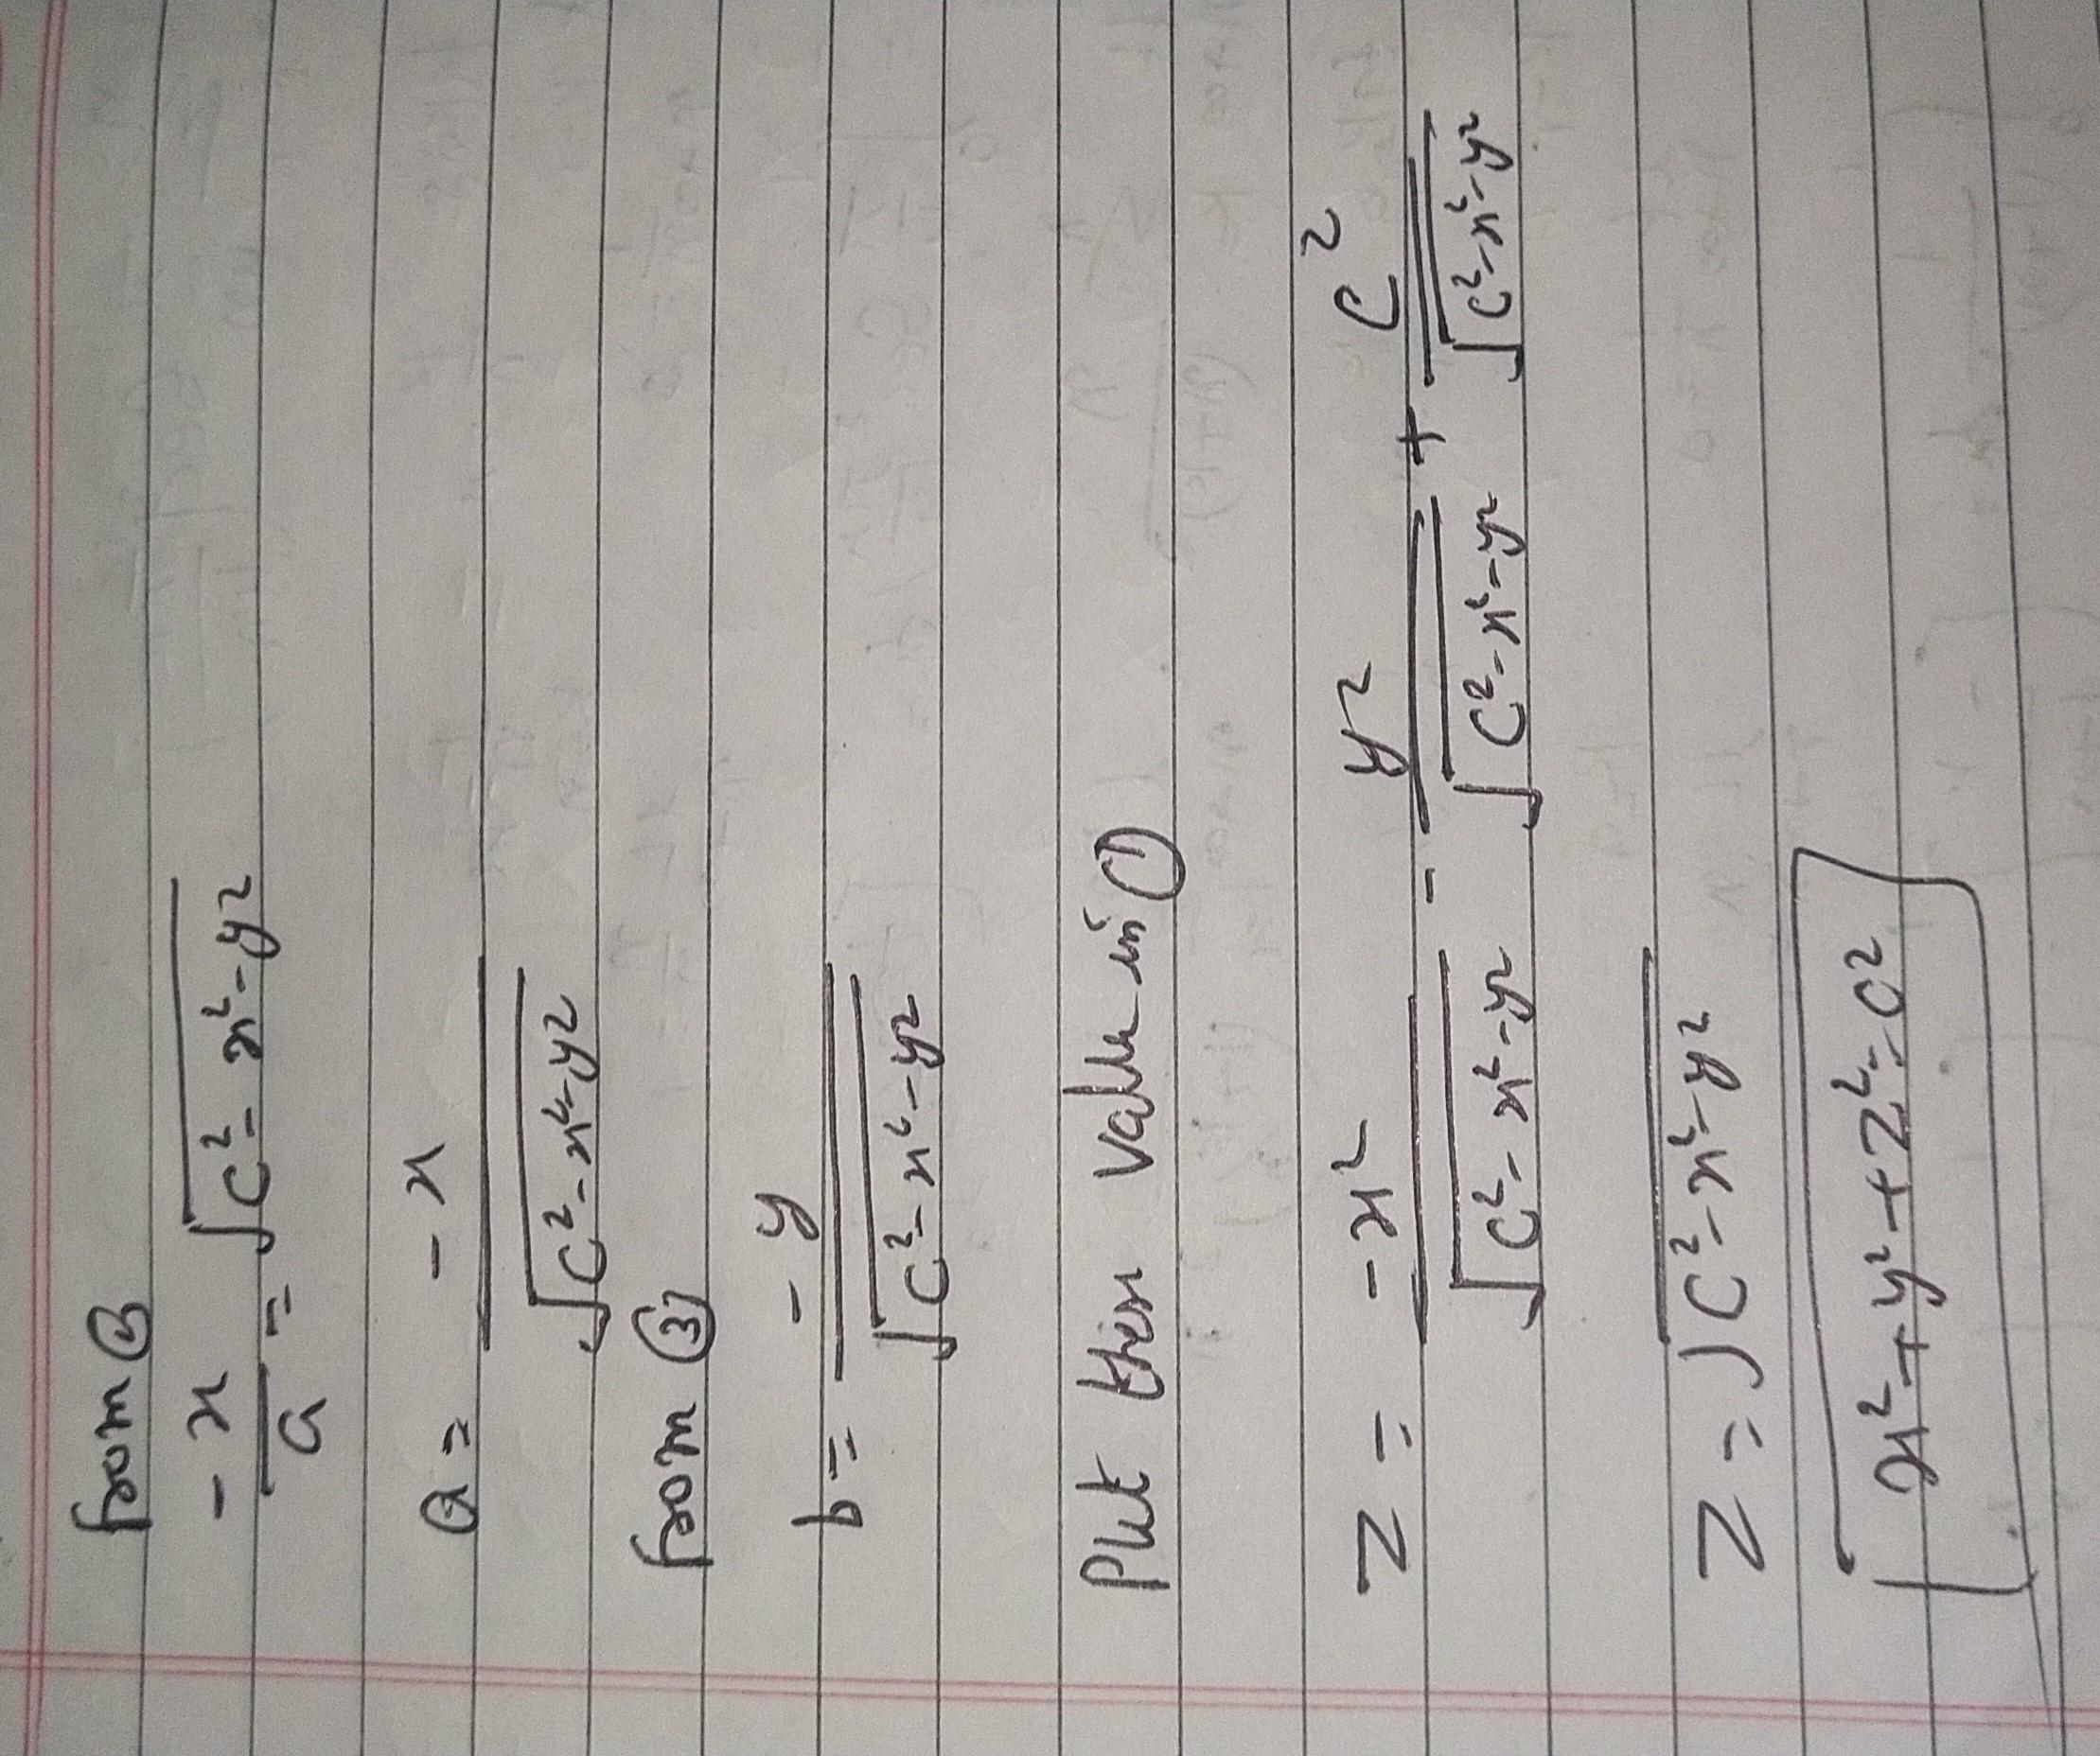 from ②
-x/a = √(c²-x²-y²)
a = -x/√(c²-x²-y²)
from ③
b = -y/√(c²-x²-y²)
Put then value in ①
Z = -x²/√(c²-x²-y²) - y²/√(c²-x²-y²) + c²/√(c²-x²-y²)
Z = √(c²-x²-y²)
x²+y²+z²=c²